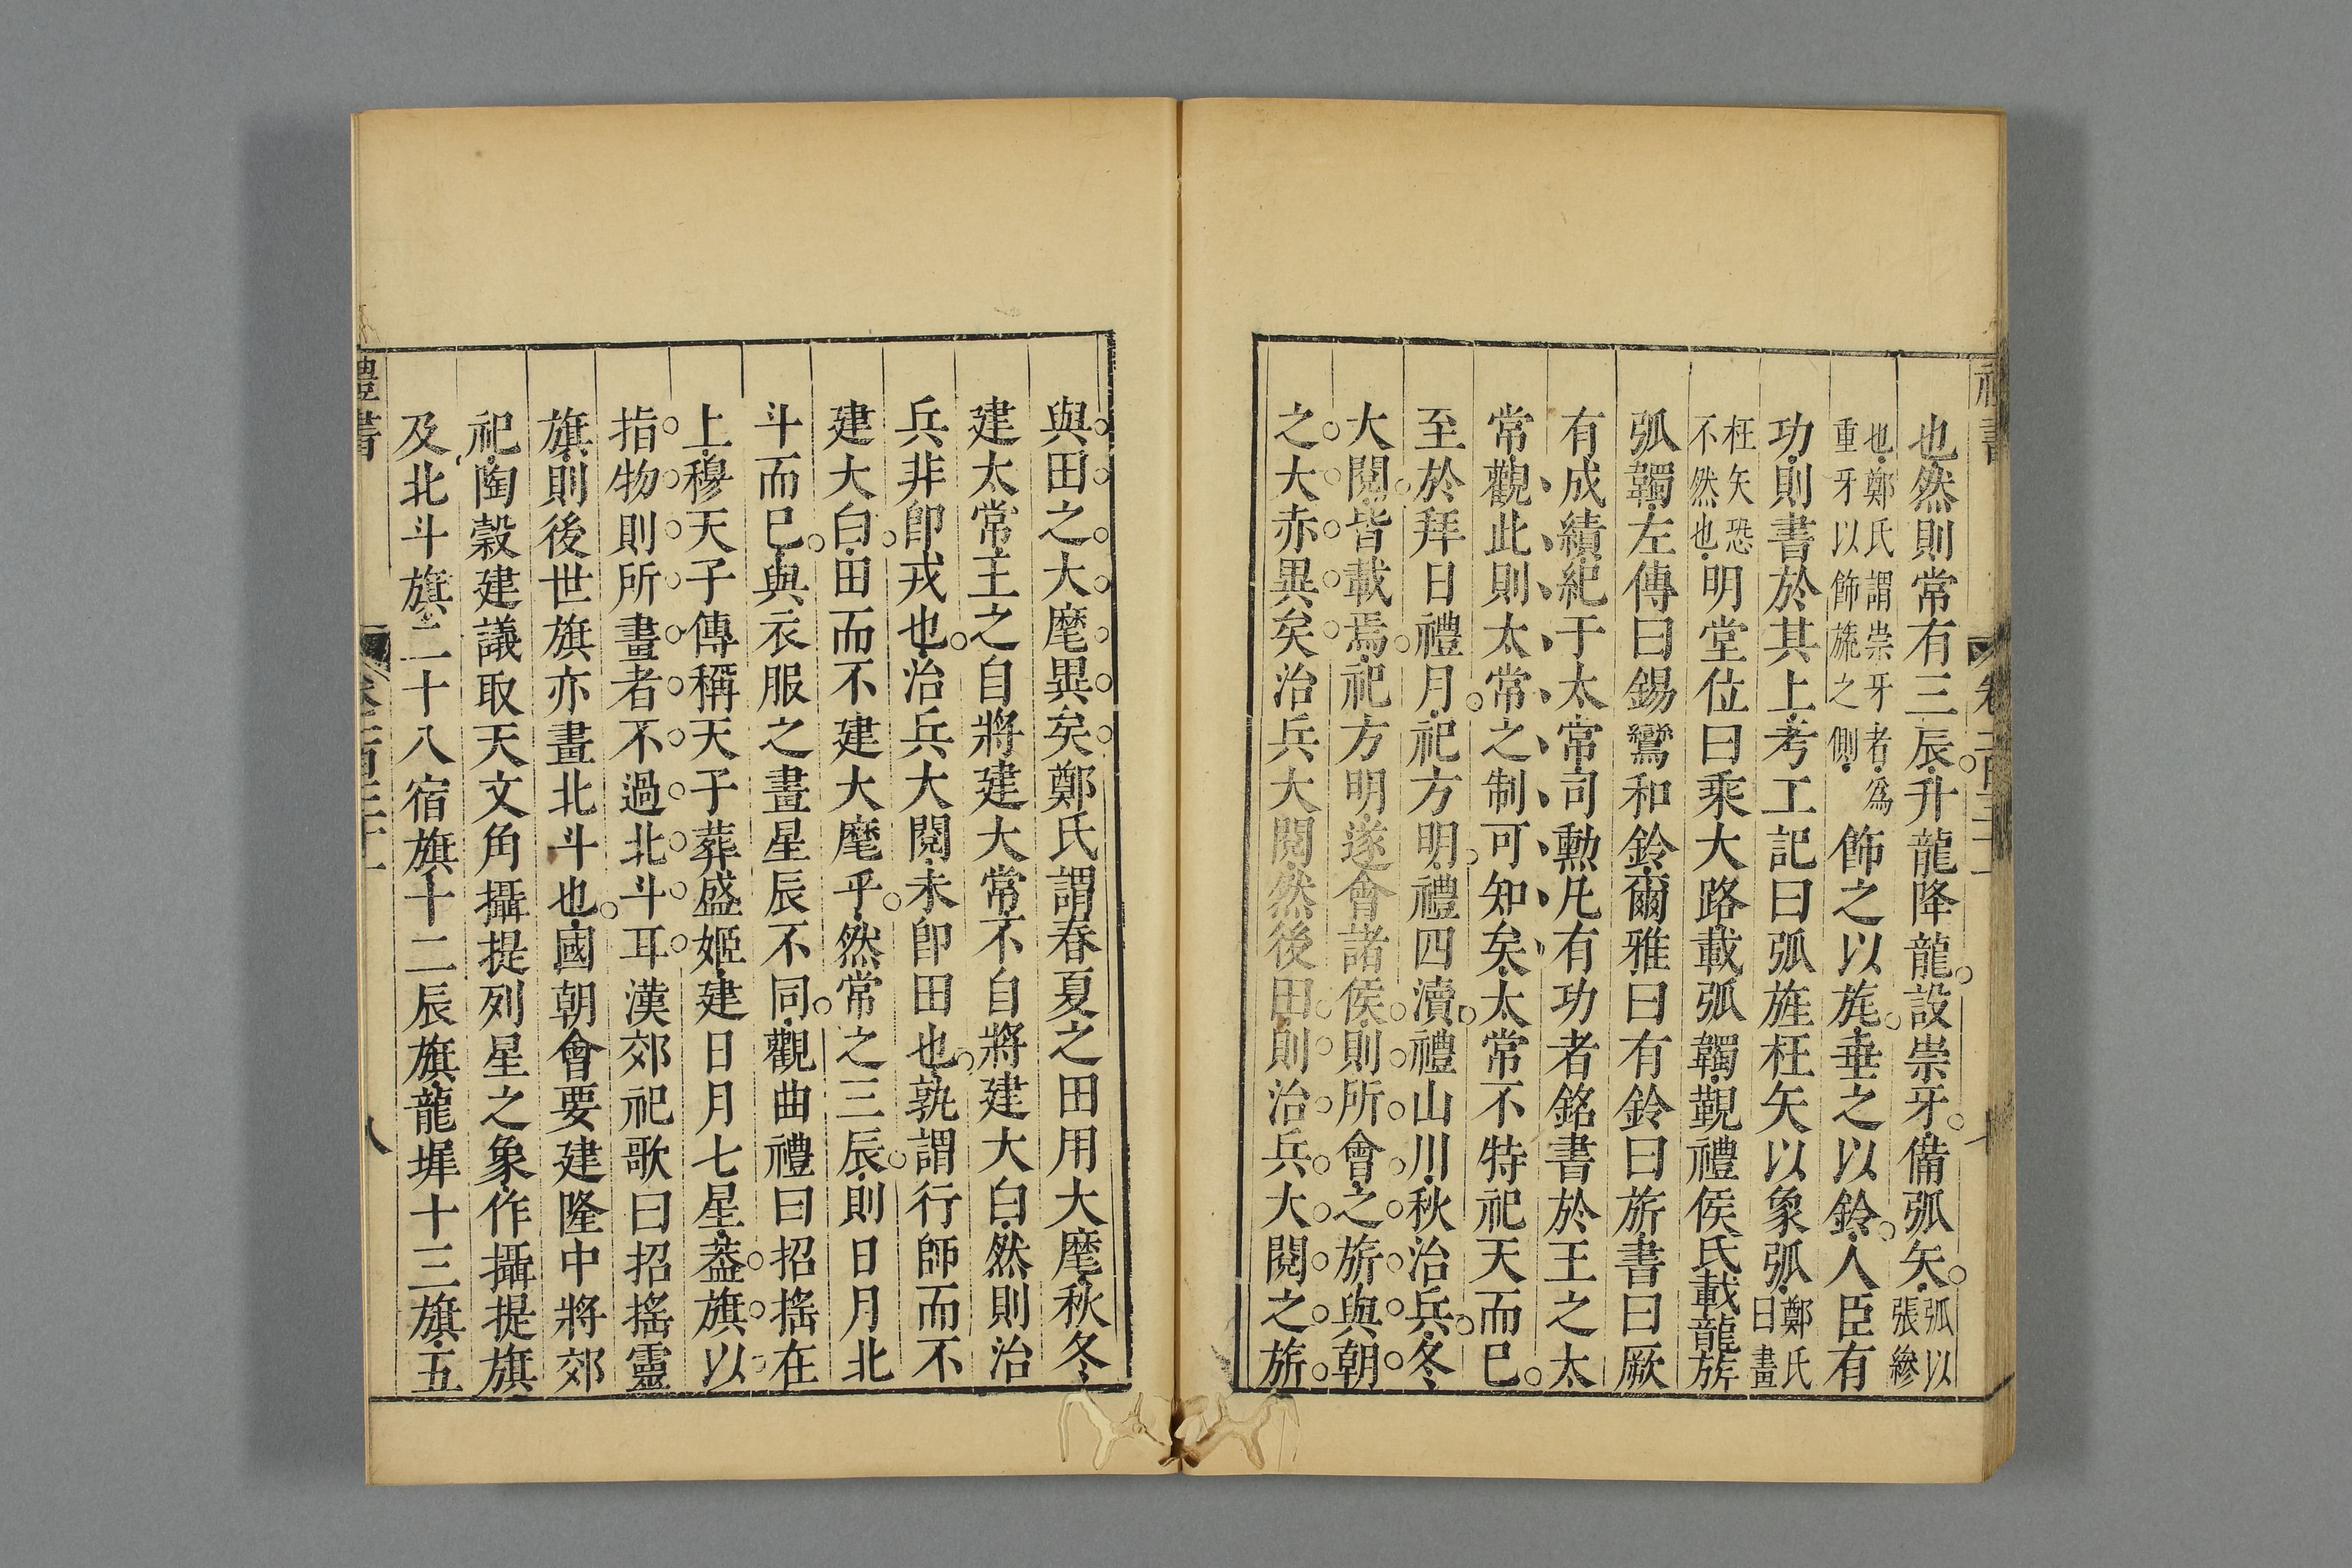 也然則常有三辰升龍降龍設崇牙備弧矢弧以張縿
也鄭氏謂崇牙者爲重牙以飾旒之側飾之以旄垂之以鈴人臣有
功則書於其上考工記曰弧旌枉矢以象弧鄭氏曰畫
枉矢恐不然也明堂位曰乘大路載弧韣覲禮侯氏載龍旂
弧韣左傳曰錫鸞和鈴爾雅曰有鈴曰旂書曰厥
有成績紀于太常司勲凡有功者銘書於王之太
常觀此則太常之制可知矣太常不特祀天而已
至於拜日禮月祀方明禮四瀆禮山川秋治兵冬
大閱皆載焉祀方明遂會諸侯則所會之旂與朝
之大赤異矣治兵大閱然後田則治兵大閱之旂
與田之大麾異矣鄭氏謂春夏之田用大麾秋冬
建太常王之自將建大常不自將建大白然則治
兵非卽戎也治兵大閱未卽田也孰謂行師而不
建大白田而不建大麾乎然常之三辰則日月北
斗而已與衣服之畫星辰不同觀曲禮曰招搖在
上穆天子傳稱天子葬盛姬建日月七星葢旗以
指物則所畫者不過北斗耳漢郊祀歌曰招搖靈
旗則後世旗亦畫北斗也國朝會要建隆中將郊
祀陶穀建議取天文角攝提列星之象作攝提旗
及北斗旗二十八宿旗十二辰旗龍墀十三旗五
禮書
卷一百三十一
八